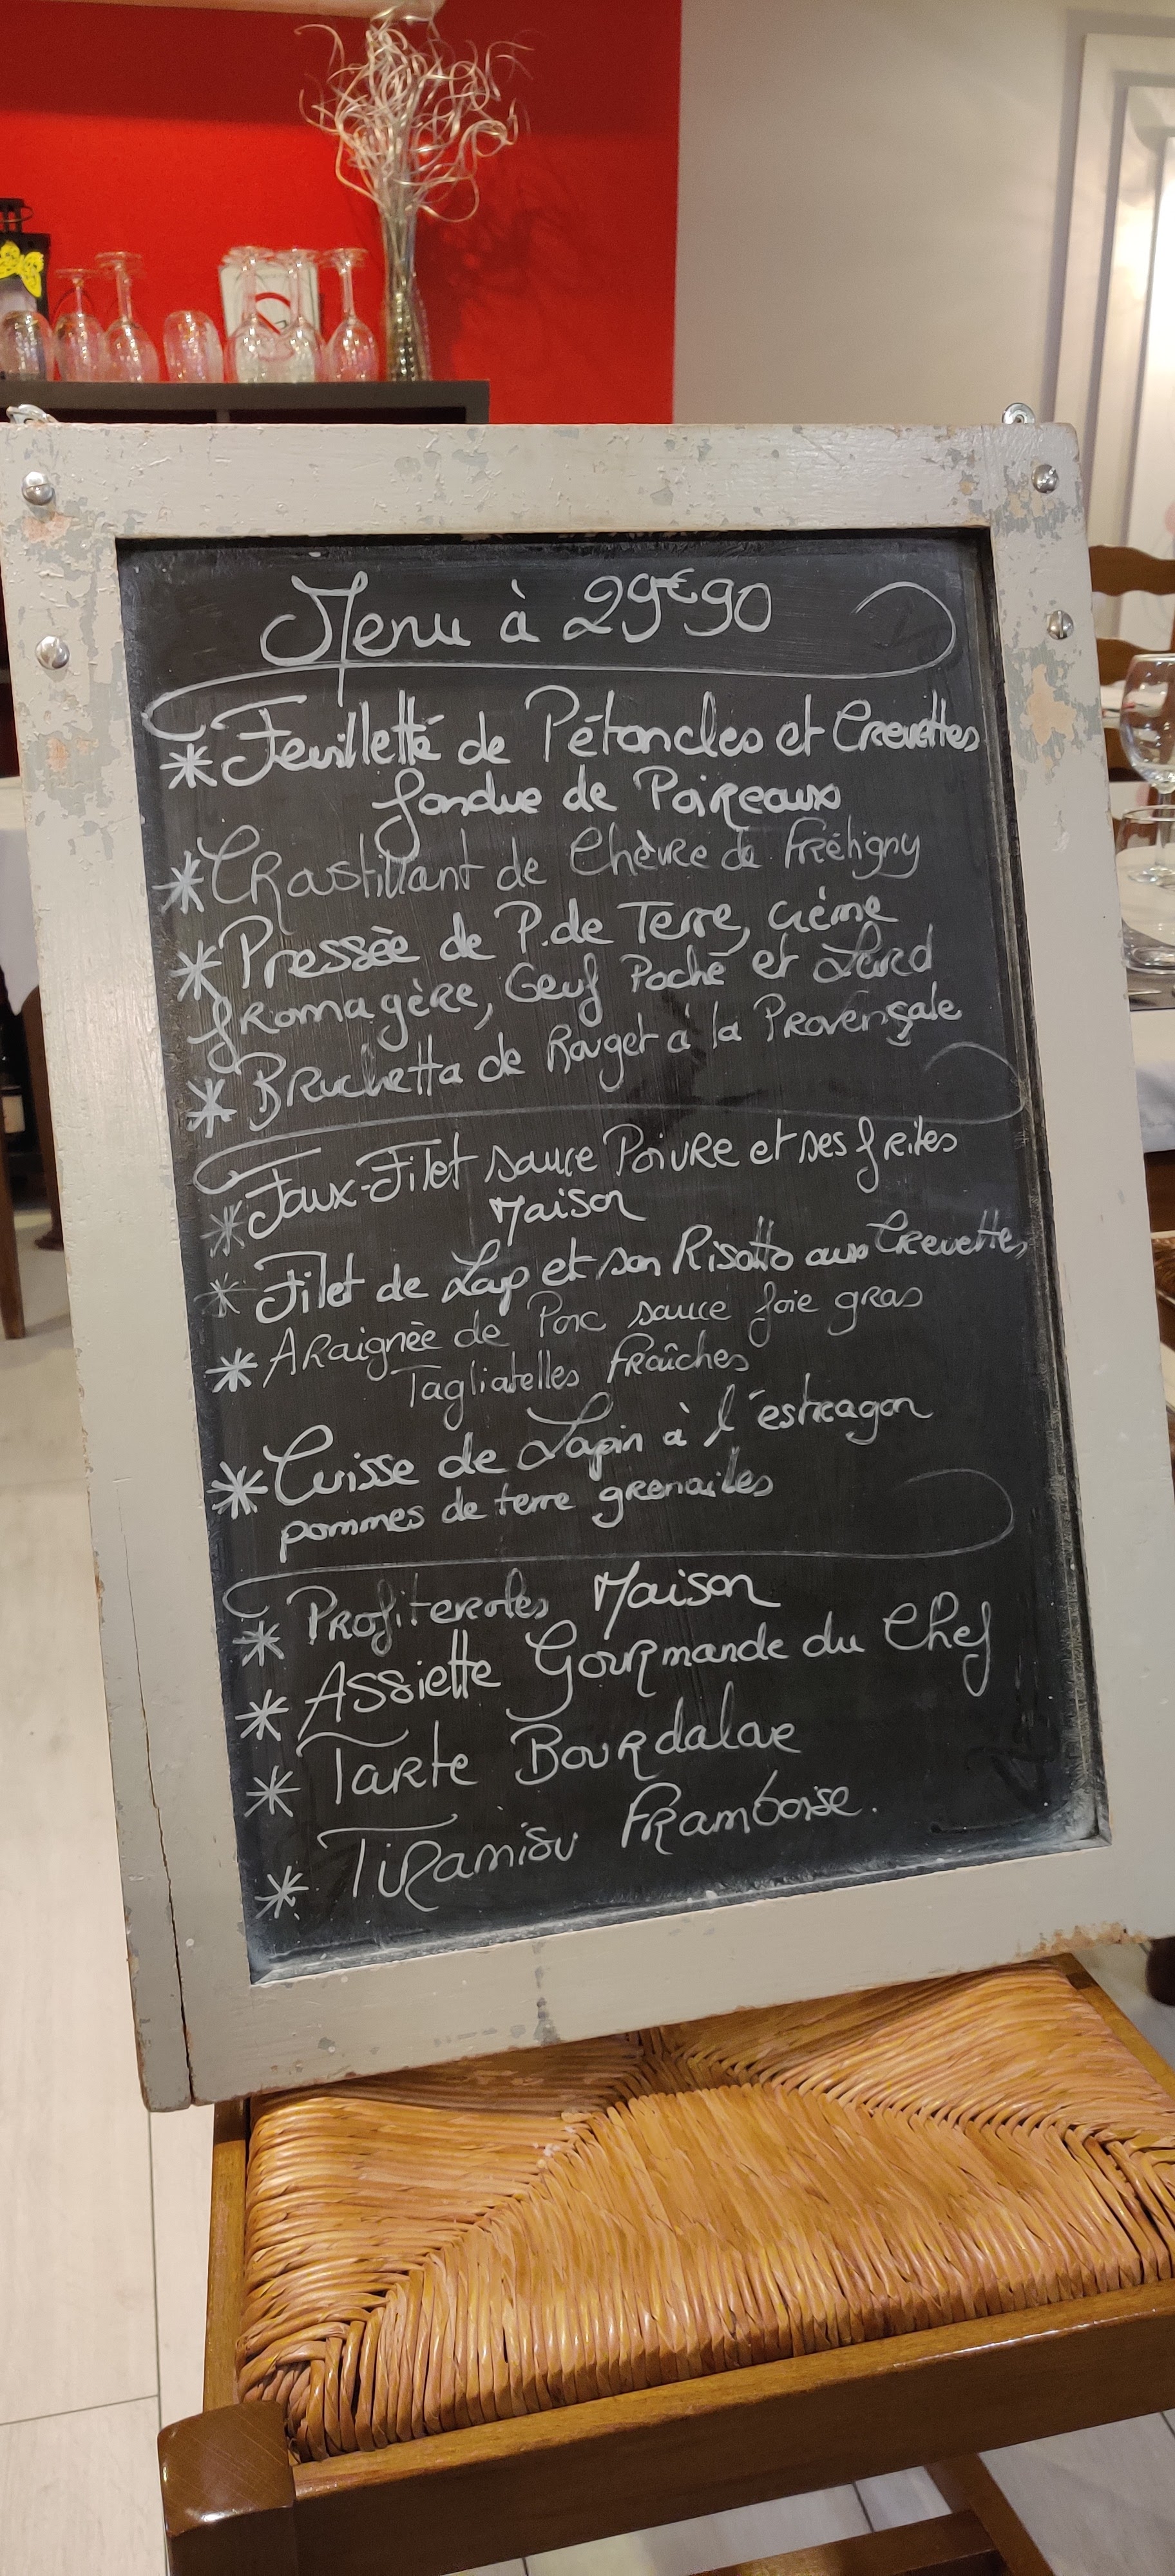 Menu à 29€90
* Feuilletté de Pétoncles et Crevettes
fondue de Poireaux
* Croustillant de Chèvre de Frétigny
* Pressée de P.de Terre, crème
fromagère, Oeuf Poché et Lard
* Bruchetta de Rouget à la Provençale
* Faux-Filet sauce Poivre et ses frites
Maison
* Filet de Lap et son Risotto aux Crevettes
* Araignée de Porc sauce foie gras
Tagliatelles fraîches
* Cuisse de Lapin à l'estragon
pommes de terre grenailles
* Profiteroles Maison
* Assiette Gourmande du Chef
* Tarte Bourdaloue
* Tiramisu Framboise.